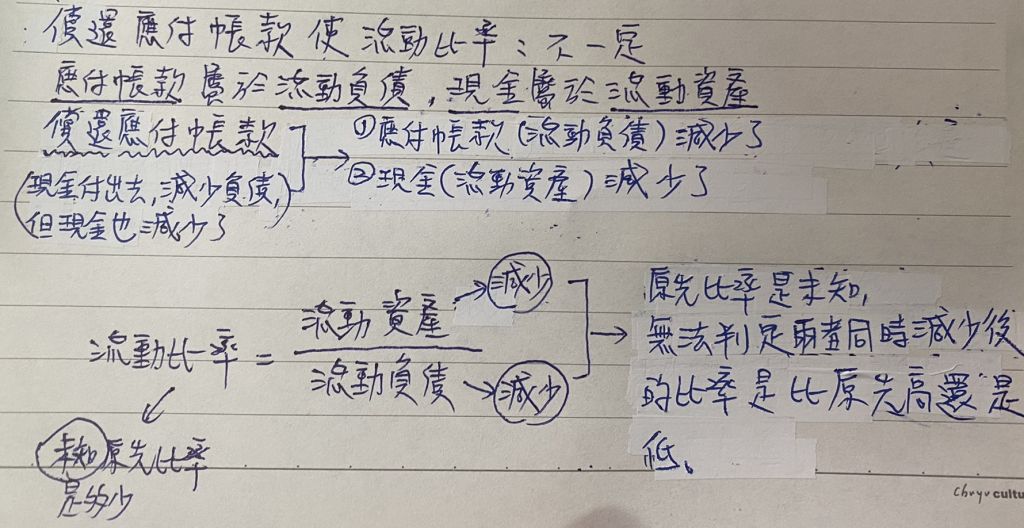 償還應付帳款使流動比率：不一定
應付帳款屬於流動負債，現金屬於流動資產
償還應付帳款
①應付帳款(流動負債)減少了
②現金(流動資產)減少了
(現金付出去，減少負債，
但現金也減少了)
流動比率 = 流動資產 → 減少
流動負債 → 減少
原先比率是未知，
無法判定兩者同時減少後
的比率是比原先高還是
低。
未知原先比率
是多少